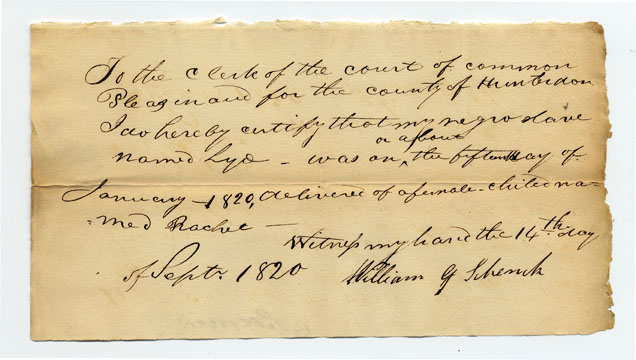 To the Clerk of the court of common
Pleas in and for the county of Hunterdon
I do hereby certify that my negro slave
or about
named Lyd - was on ‸ the fifteenth day of
January - 1820, delivered of a female child na-
=med Rachel -
Witness my hand the 14th day
of Septr. 1820
William G Schenck